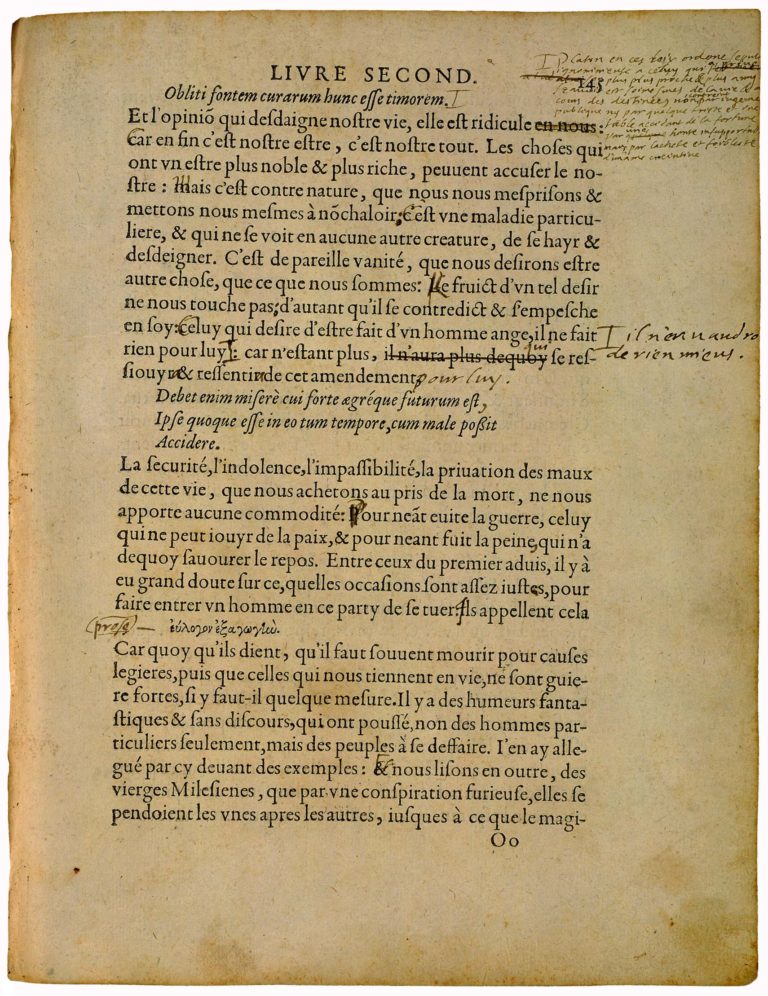 LIVRE SECOND. 145
Obliti fontem curarum hunc eſſe timorem. I
Et l'opiniõ qui deſdaigne noſtre vie, elle eſt ridicule en nous:
Car en fin c'eſt noſtre eſtre, c'eſt noſtre tout. Les choſes qui
ont vn eſtre plus noble & plus riche, peuuent accuſer le no-
ſtre: Mais c'eſt contre nature, que nous nous meſpriſons &
mettons nous meſmes à nõchaloir; C'eſt vne maladie particu-
liere, & qui ne ſe voit en aucune autre creature, de ſe hayr &
deſdeigner. C'eſt de pareille vanité, que nous deſirons eſtre
autre choſe, que ce que nous ſommes: Le fruict d'vn tel deſir
ne nous touche pas; d'autant qu'il ſe contredict & ſ'empeſche
en ſoy: Celuy qui deſire d'eſtre fait d'vn homme ange, il ne fait
rien pour luy I: car n'eſtant plus, il n'aura plus dequoy qui ſe reſ-
ſiouyr & reſſentir de cet amendement pour luy.
Debet enim miſerè cui forte ægréque futurum eſt,
Ipſe quoque eſſe in eo tum tempore, cum male poßit
Accidere.
La ſecurité, l'indolence, l'impaſſibilité, la priuation des maux
de cette vie, que nous achetons au pris de la mort, ne nous
apporte aucune commodité: Pour neãt euite la guerre, celuy
qui ne peut iouyr de la paix, & pour neant fuit la peine, qui n'a
dequoy ſauourer le repos. Entre ceux du premier aduis, il y à
eu grand doute ſur ce, quelles occaſions ſont aſſez iuſtes, pour
faire entrer vn homme en ce party de ſe tuer Ils appellent cela
prose — εὔλογον ἐξαγωγὶω.
Car quoy qu'ils dient, qu'il faut ſouuent mourir pour cauſes
legieres, puis que celles qui nous tiennent en vie, ne ſont guie-
re fortes, ſi y faut-il quelque meſure. Il y a des humeurs fanta-
ſtiques & ſans diſcours, qui ont pouſſé, non des hommes par-
ticuliers ſeulement, mais des peuples à ſe deffaire. I'en ay alle-
gué par cy deuant des exemples: & nous liſons en outre, des
vierges Mileſienes, que par vne conſpiration furieuſe, elles ſe
pendoient les vnes apres les autres, iuſques à ce que le magi-
Oo
I Platon en ces loix ordone sepul
ignominieuse a celuy qui
plus proche & plus amy
cours des destinees non
publique ny par quelque
accidant de la fortune
honte insupportable
mais par lachete et foiblesse
I il n'en vaudro
de rien mieus.